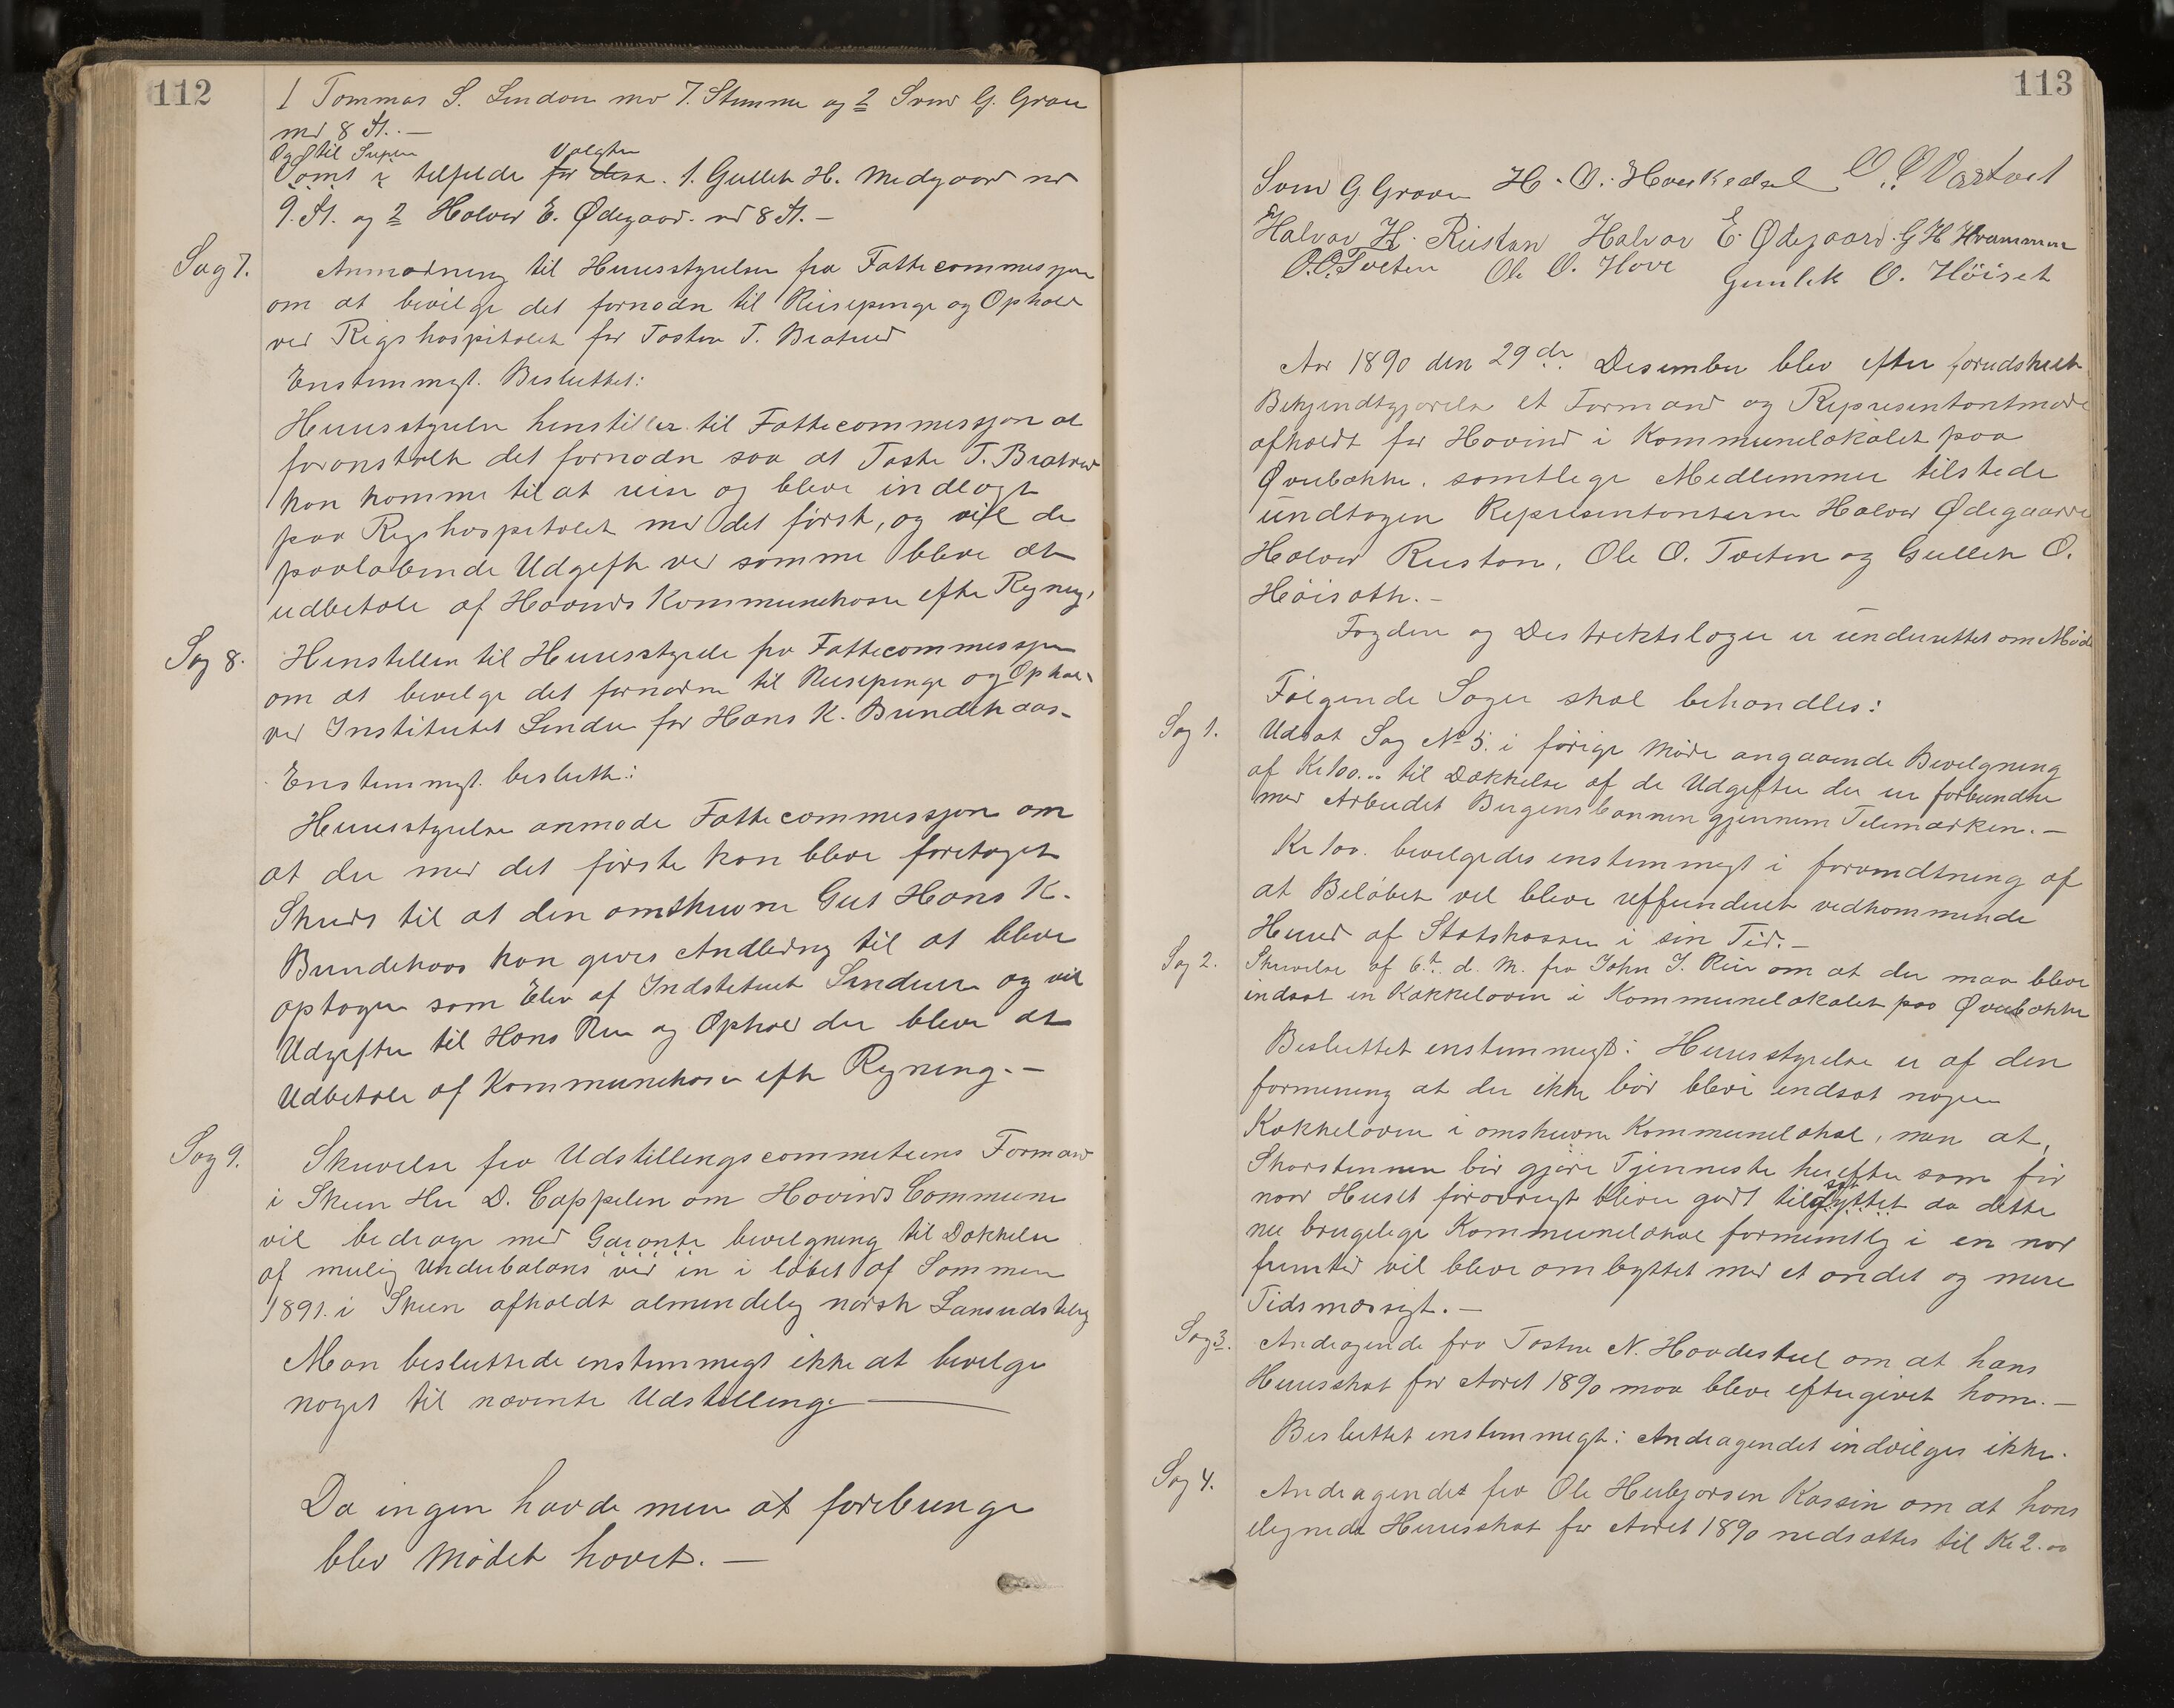 112
1 Tommas S. Lindon md 7. Stemme og 2 Svend G. Grave
md 8 St. —
Og til Supen Valgte
Samt i tilfelde for dese. 1. Gullek H. Medgaard md
9. St. og 2 Halvor E. Ødegaard. md 8 St. —
Sag 7. Anmodning til Heresstyrelsen fra Fattecommessjon
om at bevilge det fornødn til Reisepenge og Ophold
ved Rigshospitalet for Tosten T. Bratrud
Enstemmigt. Besluttet:
Heresstyrelse henstiller til Fattecommessjon at
foranstalte det fornødn saa at Toste T. Bratrud
kan komme til at reise og bleve indlagt
paa Regshospitalet md det først, og vil de
paaløbende Udgifte ved samme bleve at
udbetale af Hovinds Kommunekasse efte Regning,
Sag 8. Henstellen til Heresstyrele fra Fattecommessjon
om at bevelge det fornødne til Reisepenge og Ophold
ved Institutet Linden for Hans K. Bundekaas-
Enstemmigt. besluttet:
Heresstyrelse anmode Fattecommessjon om
at der med det første kan bleve foretaget
Skridt til at den omskrevne Gut Hans K.
Bundekaas kan gives Andledning til at bleve
optagen som Elev af Indstetuet Lindern og vil
Udgifter til Hans Reise og Ophold der bleve at
Udbetale af Kommunekasse efte Regning. —
Sag 9. Skrivelse fra Udstillingscommeteens Formand
i Skien Her D. Cappelen om Hovinds Commune
vil bedrage med Garante bevelgning til Dækkelse
af mulig Underbalans ved en i løbet af Sommeren
1891. i Skien afholdt almindelig norsk Landsudstilling
Man besluttede enstemmigt ikke at bevelge
noget til nævnte Udstelling. —
Da ingen havde mere at forebringe
blev Mødet hævet. —
113
Svend G. Graver H. O. Haukedal O. O. Vaatveit
Halvor H. Rustan Halvor E. Ødegaard. G H Kvammen
O. O. Tveten Ole O. Hove Gunlek O. Höiset
Aar 1890 den 29de Desember blev efter forudskeet
Bekjendtgjørelse et Formand og Representantmøde
afholdt for Hovind i Kommunelokalet paa
Øverbøkke. samtlege Medlemmer tilstede
undtagen Representanterne Halvor Ødegaard
Halvor Rustan, Ole O. Tveten og Gullek O.
Höisæth. —
Fogden og Destrektslæger er underrettet om Møde
Følgende Sager skal behandles:
Sag 1. Udsat Sag No 5. i førige Møde angaaende Bevelgning
af Kr 100... til Dækkelse af de Udgifter der er forbundne
med Arbeidet Bergensbannen gjennem Telemarken. —
Kr 100. bevelgedes enstemmegt i forvendtning af
at Beløbet vel bleve reffunderet vedkommende
Hered af Statskassen i sin Tid. —
Sag 2. Skrivelse af 6te d. M. fra John J. Rui om at der maa bleve
indsat en Kakkeloven i Kommunelokalet paa Øverbøkke
Besluttet enstemmegt: Heresstyrelse er af den
formening at der ikke bør bleve endsat nogen
Kakkeloven i omskrevne Kommunelokal, men at
Skorstennen bør gjøre Tjenneste herefter som før
naar Huset forøvregt bliver godt tilslyttet da dette
nu brugelege Kommunelokal formentlig i en nær
fremtid vil bleve ombyttet med et andet og mere
Tidsmæssigt. —
Sag 3. Andragende fra Tosten N. Haadestul om at hans
Heresskat for Aaret 1890 maa bleve eftergivet ham. —
Besluttet enstemmegt: Andragendet indvilges ikke.
Sag 4. Andragendet fra Ole Herbjørsen Kassin om at hans
ilegnede Heresskat for Aaret 1890 nedsættes til Kr 2.00